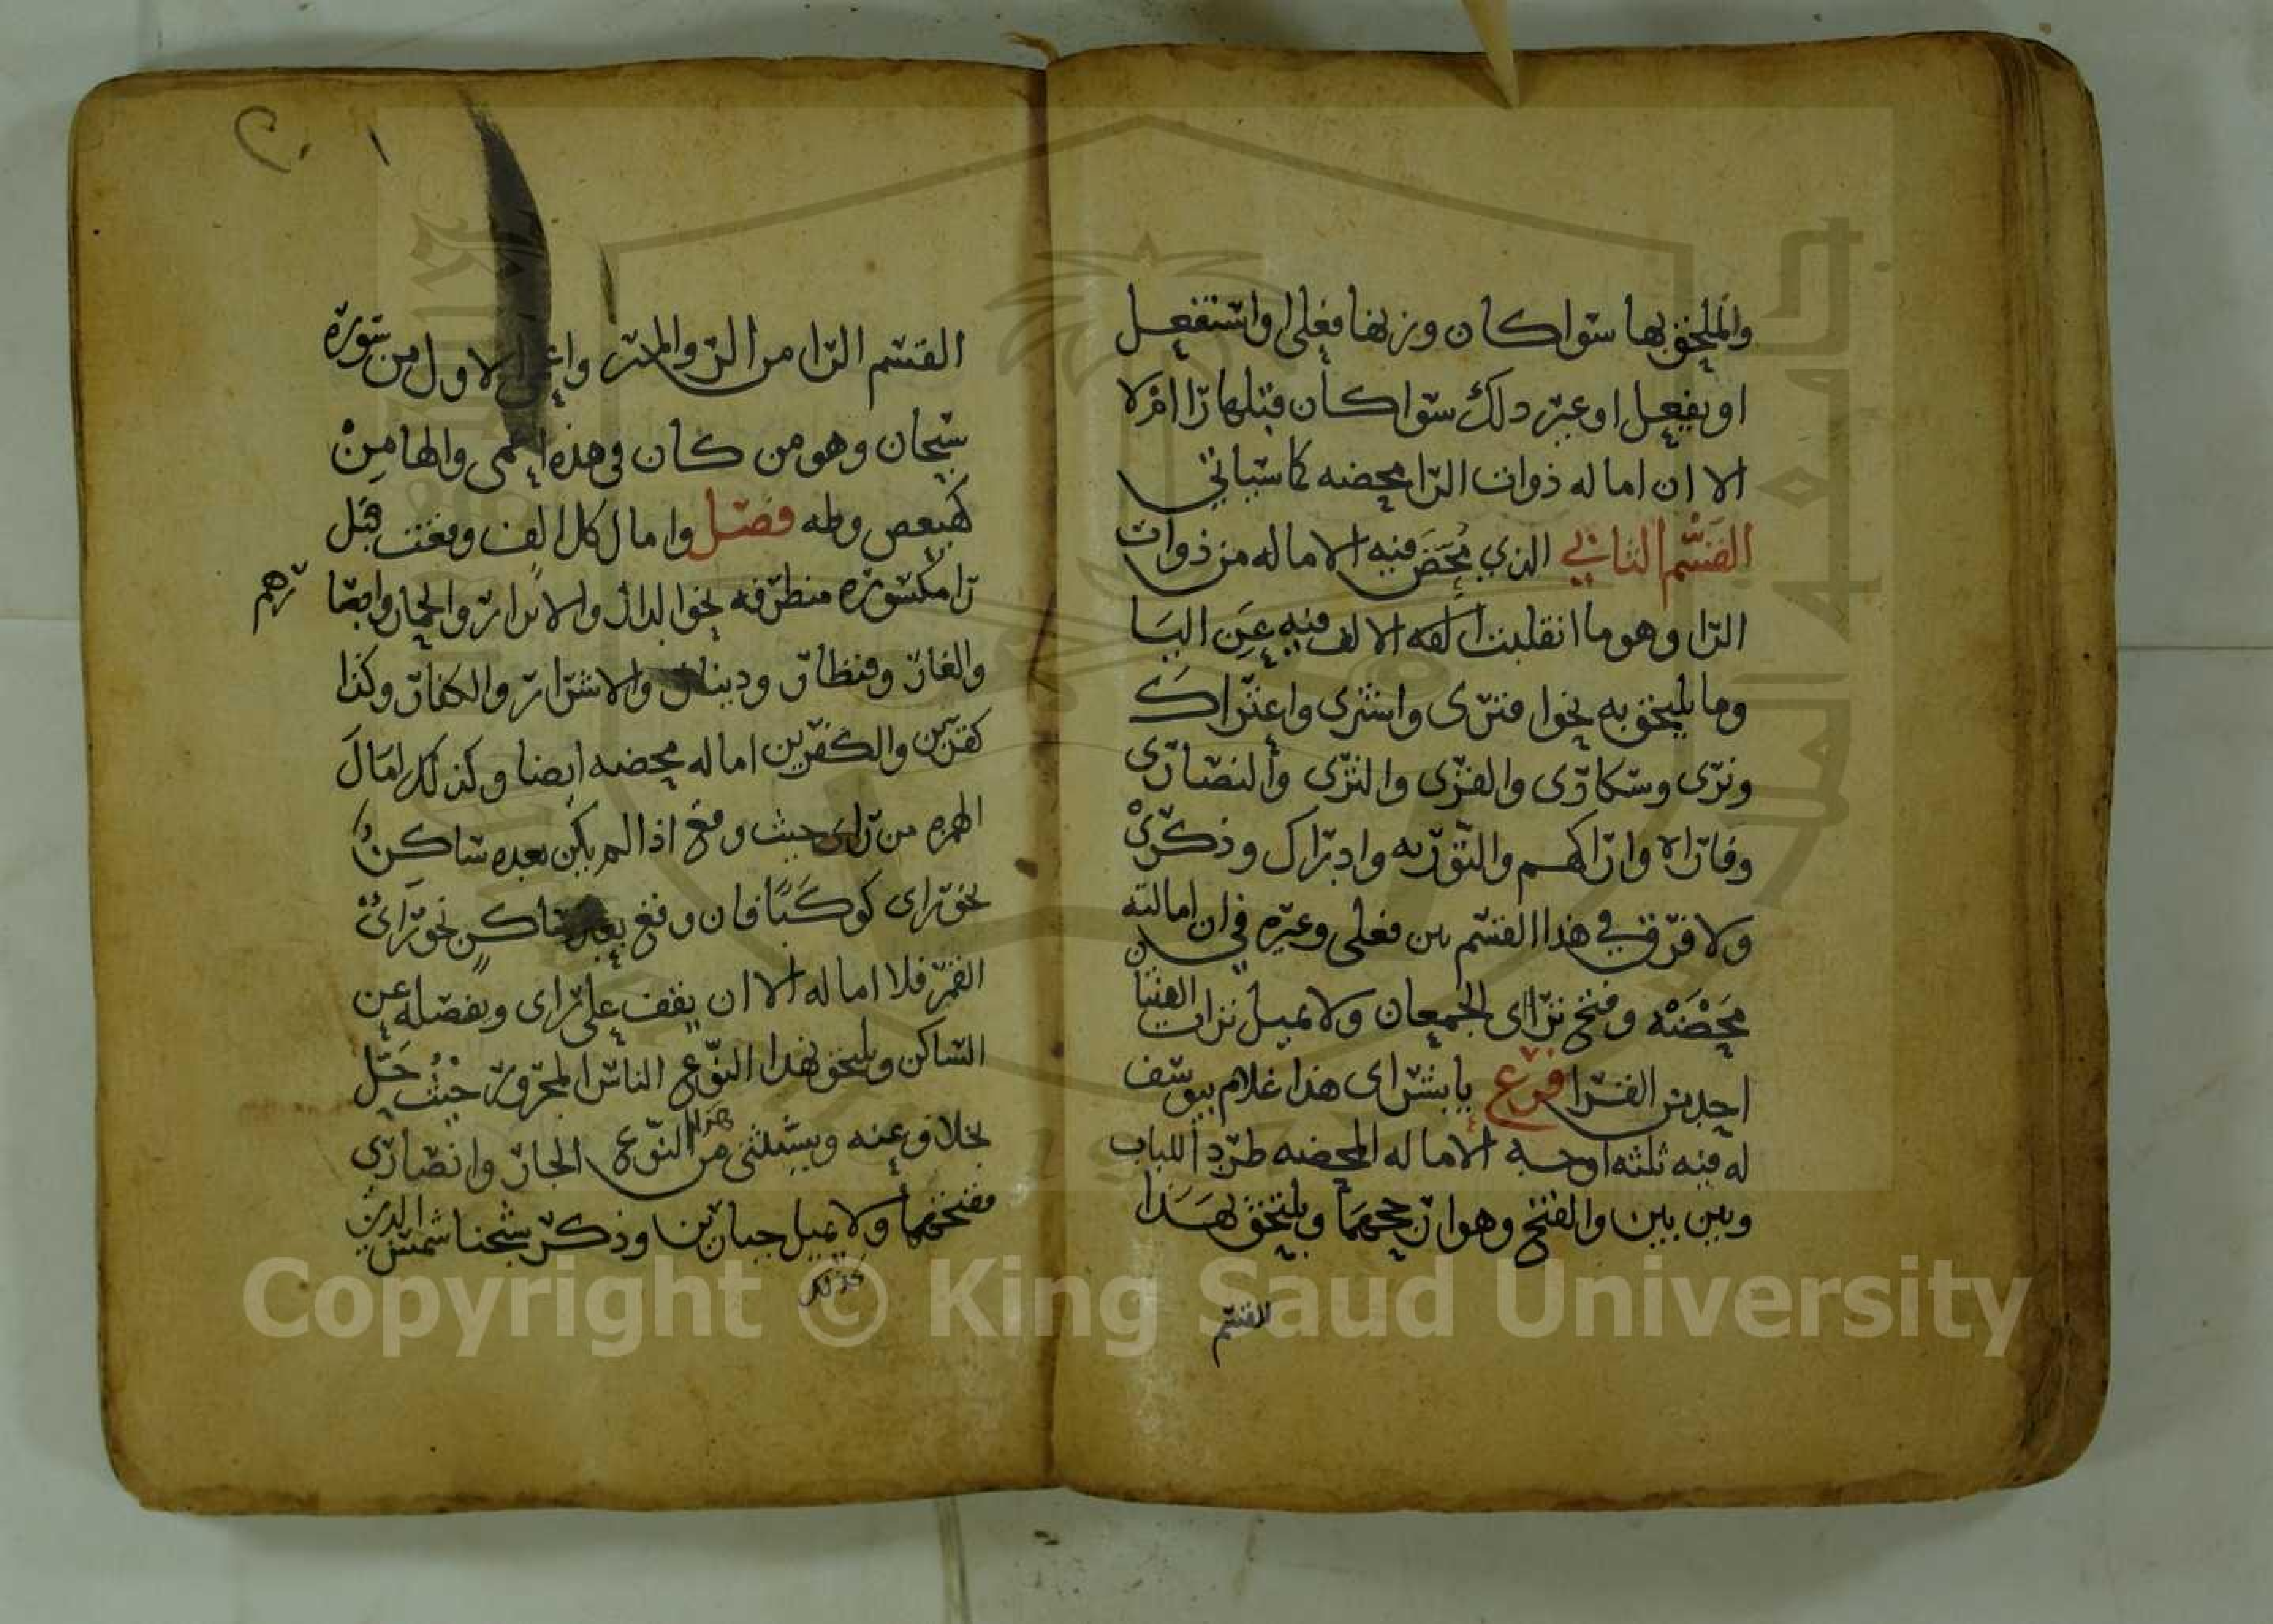 والملحق بها سوا كان وزنها فعلى او استفعل
او يفعل او غير دلك سوا كان قبلها را ام لا
الا ان اماله ذوات الرا محضه كما سياتي
القسم الثاني الذي مُحّضَ فيه الاماله من ذوات
الرا وهو ما انقلبت الفه الالف فيه عن اليا
وما يلحق به نحو افترى واشترى واعتراك
ونرى وسكارى والقرى والثرى والنصارى
وفاراه واراكهم والتوريه وادراك وذكرى
ولا فرق في هذا القسم بين فعلى وغيره في ان امالته
محضه وفتح تراى الجمعان ولا يميل تراات الفئتان
احد من القرا فرع يا بشراى هذا غلام بيوسف
له فيه ثلثه اوجه الاماله المحضه طردا للباب
وبين بين والفتح وهو ارجحهما ويلتحق بهذا
القسم
القسم الرا من الر والمر واعمى الاول من سورة
سبحان وهو من كان في هذه اعمى والها من
كهيعص وطه فصل وامال كل الف وقعت قبل
را مكسوره متطرفه نحو الدار والابرار والحمار وابصا
رهم
والغار وقنطار ودينار والاشرار والكفار وكذا
كفرين والكفرين اماله محضه ايضا وكذلك امال
الهمزه من راى حيث وقع اذا لم يكن بعده ساكن
نحو راى كوكبا فان وقع بعده ساكن نحو راى
القمر فلا اماله الا ان يقف على راى ويفصله عن
الساكن ويلحق بهذا النوع الناس المجرور حيث حل
بخلاف عنه ويستثنى من هذا النوع الجار وانصارى
ففتحهما ولا يميل جبارين وذكر شيخنا شمس الدين
كذلك
Copyright © King Saud University